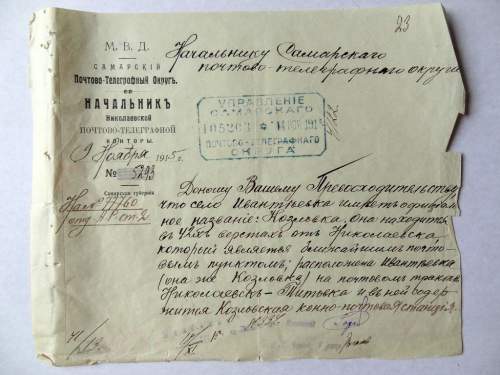 23
М. В. Д.
САМАРСКІЙ
Почтово-Телеграфный Округъ.
НАЧАЛЬНИКЪ
Николаевской
ПОЧТОВО-ТЕЛЕГРАФНОЙ
КОНТОРЫ.
9 Ноября 1915 г.
№ 5293
Самарская губернія
Начальнику Самарскаго
почтово-телеграфнаго округа
УПРАВЛЕНІЕ
САМАРСКАГО
ПОЧТОВО-ТЕЛЕГРАФНАГО
ОКРУГА
Доношу Вашему Превосходительству,
что село Ивантѣевка имѣетъ официаль-
ное названіе: Козловка, она находится
въ 42хъ верстахъ отъ Николаевска,
который является ближайшимъ почто-
вымъ пунктомъ; расположена Ивантѣевка
(она же Козловка) на почтовомъ трактѣ
Николаевскъ-Титовка и въ ней содер-
жится Козловская конно-почтовая станція.